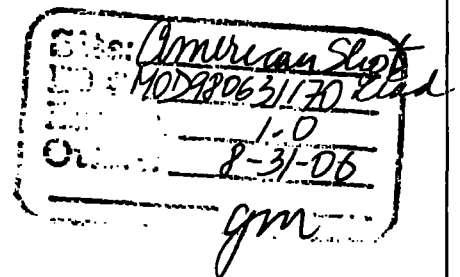 Site: American Shot
ID #: MOD980631170 Lead
1.0
Other: 8-31-06
gm